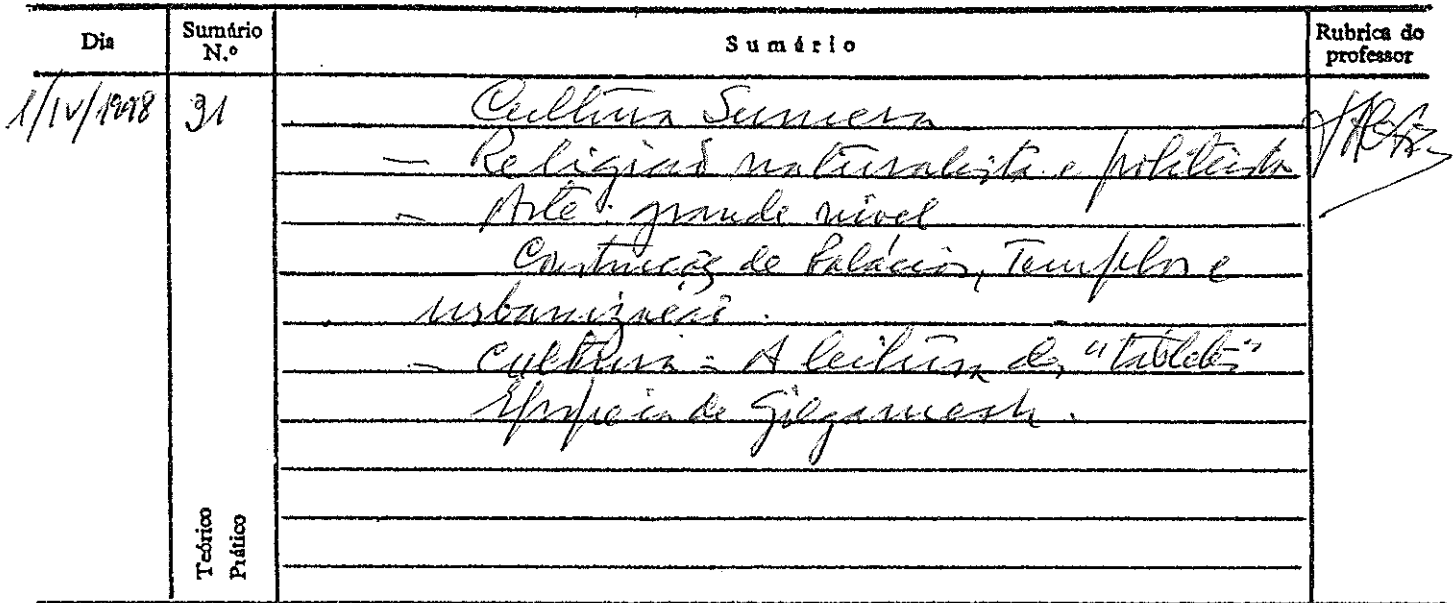 Dia Sumário N.º Sumário Rubrica do professor
1/IV/1998 31 Cultura Sumera
- Religião naturalista e politeísta
- Arte: grande nível
Construção de Palácios, Templos e
urbanização.
- Cultura = A leitura de "tablets"
Epopeia de Gilgamesh.
Teórico
Prático